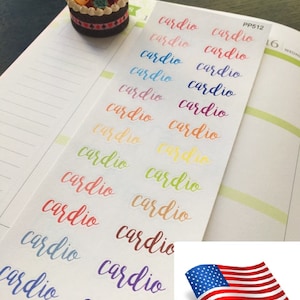 PP512
16
cardio cardio
cardio cardio
cardio cardio
cardio cardio
cardio cardio
cardio cardio
cardio cardio
cardio cardio
cardio cardio
cardio cardio
cardio cardio
cardio